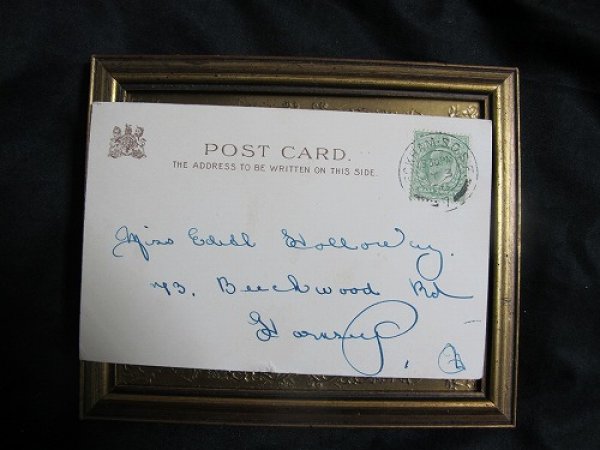 POST CARD.
THE ADDRESS TO BE WRITTEN ON THIS SIDE.
Miss Edith Holloway.
73. Beechwood Rd
Hornsey.